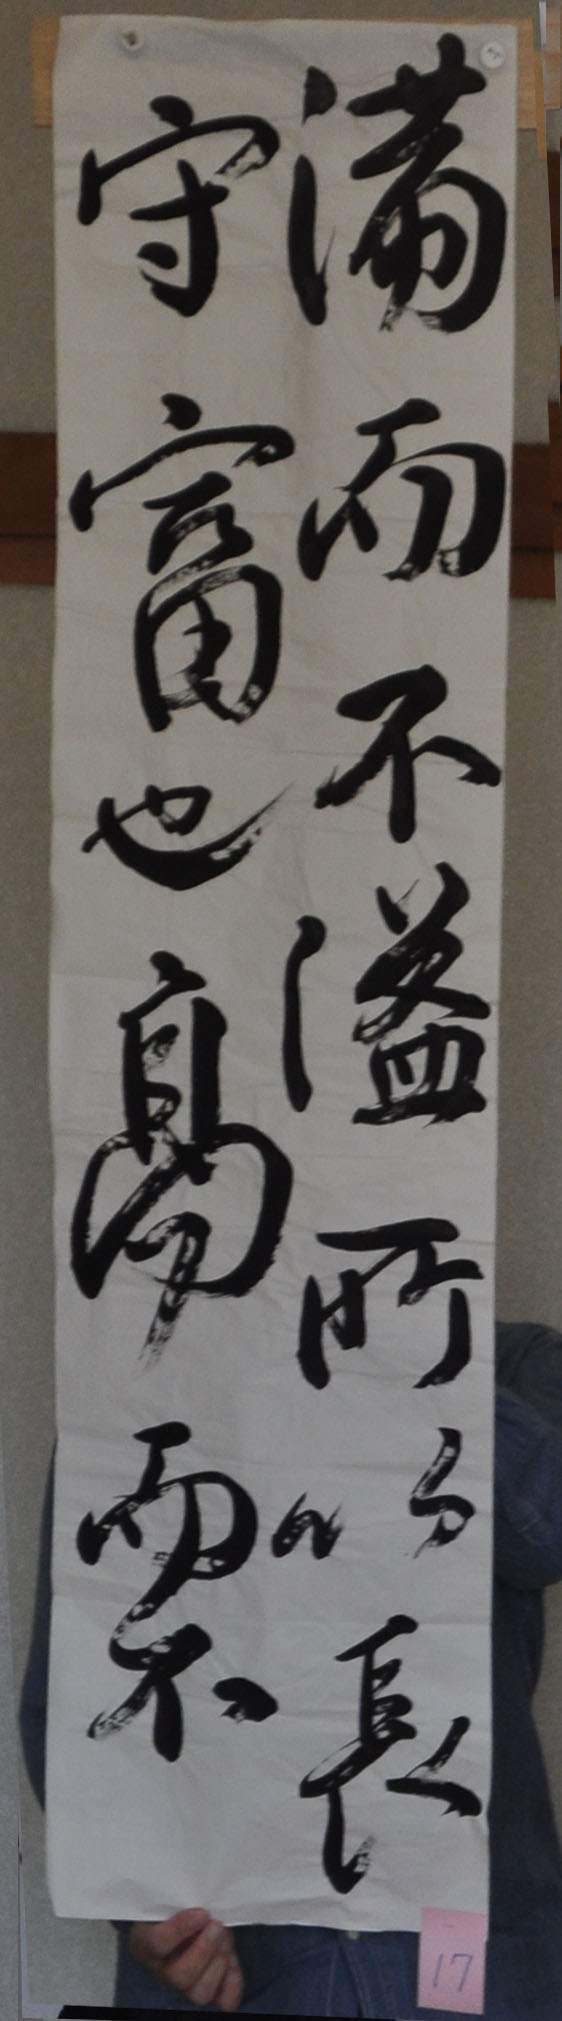 満而不溢所以長
守富也高而不
17